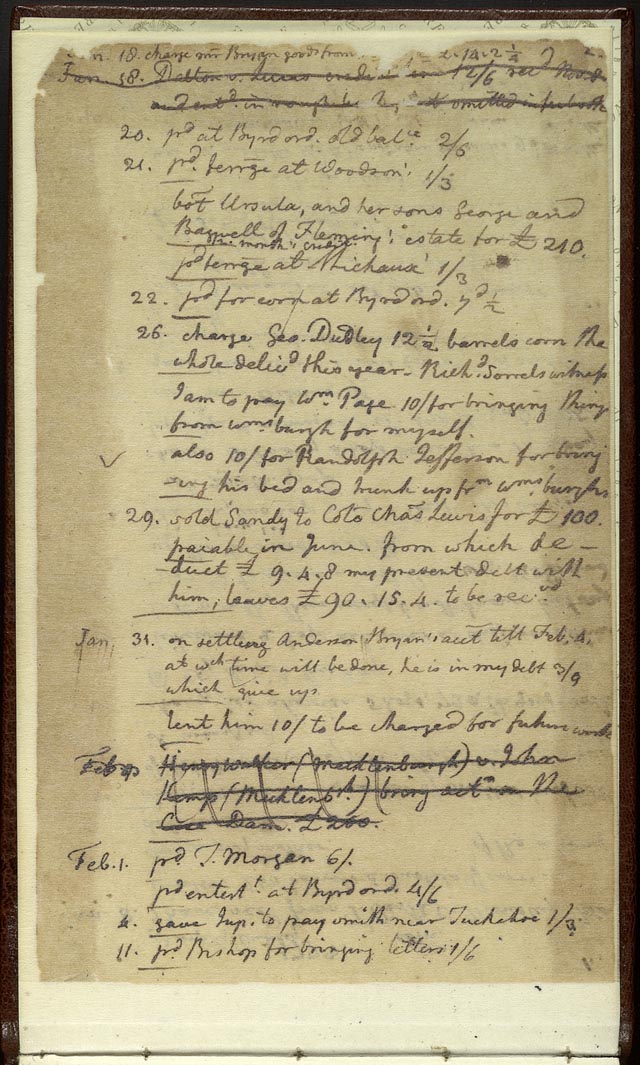 Jan. 18. charge mr Bryan goods from 2-14-2 1/4
Jan. 18. Dalton v. 12/6 recd Nov. 8
and entd. in omitted in feebook
20. pd at Byrd ord. old balce 2/6
21. pd. ferrge at Woodson's 1/3
bot Ursula, and her sons George and
Bagwell of Fleming's estate for £210.
12. month's credit
pd ferrge at Michaux' 1/3
22. pd for corn at Byrd ord. 7d 1/2
26. charge Geo. Dudley 12 1/2 barrels corn the
whole delivd this year. Richd. Sorrels witness
I am to pay Wm. Page 10/ for bringing things
from Wmsburgh for myself.
also 10/ for Randolph Jefferson for bring
ing his bed and trunk up frm Wmsburgh
29. sold Sandy to Colo Chas Lewis for £100.
paiable in June. from which de-
duct £9.4.8 my present debt with
him, leaves £90.15.4. to be recvd
Jan. 31. on settling Anderson Bryan's acct till Feb. 4.
at wch time will be done, he is in my debt 3/9
which give up.
lent him 10/ to be charged for future work
Feb. Henry Walker (Mecklenburgh) v. John
Kemp (Mecklenbh.) bring actn on the
Case Dam. £200.
Feb. 1. pd J. Morgan 6/.
pd entertt. at Byrd ord. 4/6
4. gave Jup. to pay smith near Tuckahoe 1/3
11. pd. Bishop for bringing letters 1/6